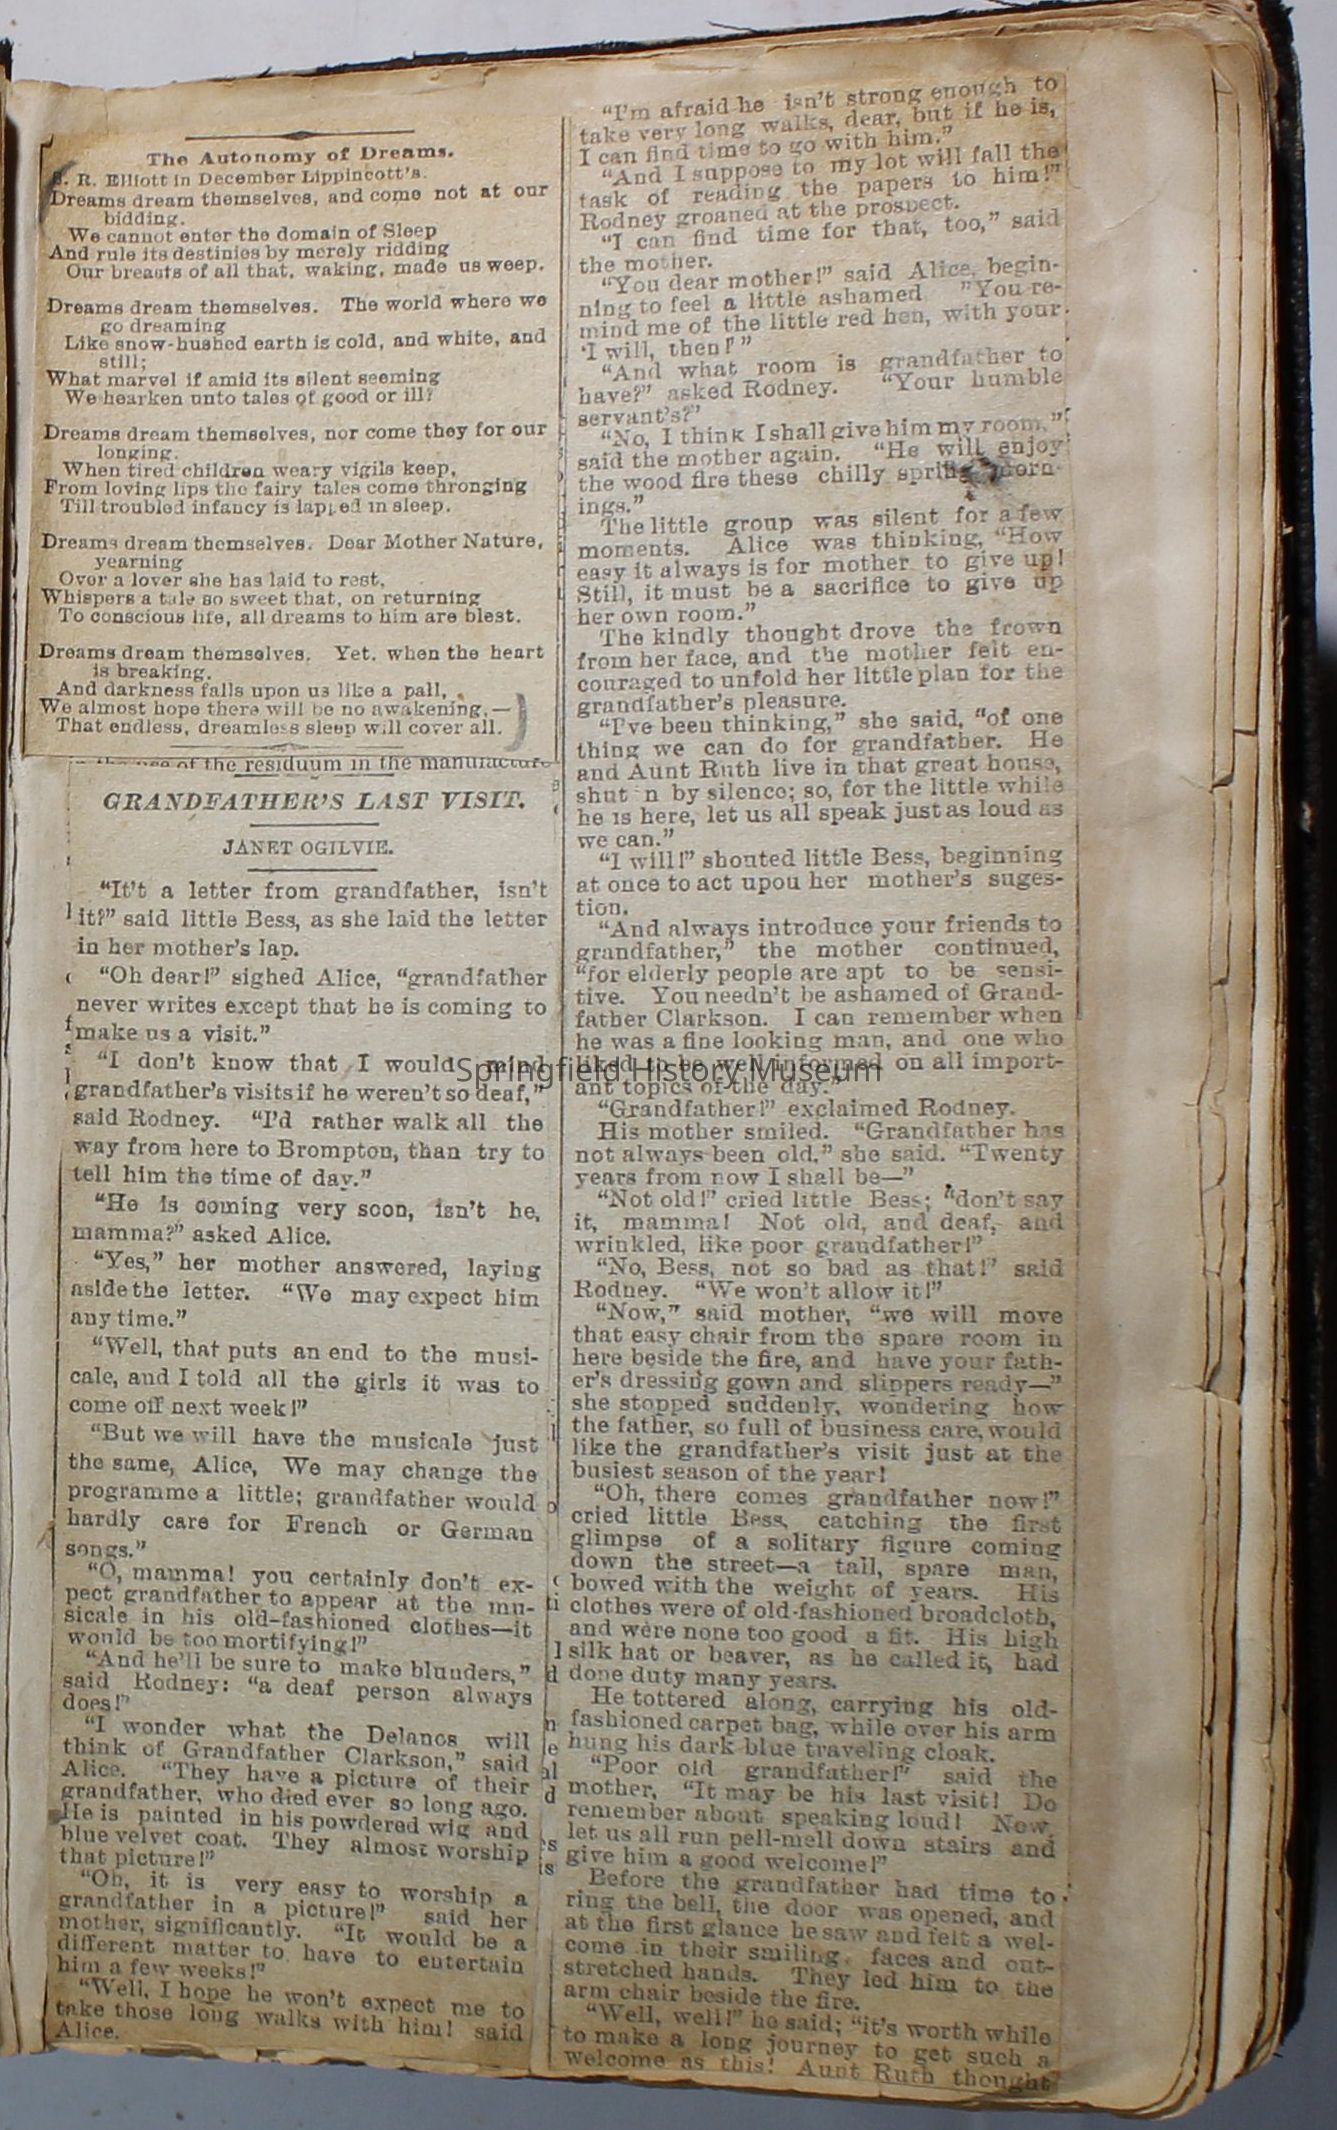 The Autonomy of Dreams.
S. R. Elliott in December Lippincott's.
Dreams dream themselves, and come not at our
bidding.
We cannot enter the domain of Sleep
And rule its destinies by merely ridding
Our breasts of all that, waking, made us weep.
Dreams dream themselves. The world where we
go dreaming
Like snow-hushed earth is cold, and white, and
still;
What marvel if amid its silent seeming
We hearken unto tales of good or ill?
Dreams dream themselves, nor come they for our
longing.
When tired children weary vigils keep,
From loving lips the fairy tales come thronging
Till troubled infancy is lapped in sleep.
Dreams dream themselves. Dear Mother Nature,
yearning
Over a lover she has laid to rest,
Whispers a tale so sweet that, on returning
To conscious life, all dreams to him are blest.
Dreams dream themselves. Yet, when the heart
is breaking,
And darkness falls upon us like a pall,
We almost hope there will be no awakening,—
That endless, dreamless sleep will cover all.
of the residuum in the manufacture
GRANDFATHER'S LAST VISIT.
JANET OGILVIE.
"It't a letter from grandfather, isn't
it?" said little Bess, as she laid the letter
in her mother's lap.
"Oh dear!" sighed Alice, "grandfather
never writes except that he is coming to
make us a visit."
"I don't know that I would mind
grandfather's visits if he weren't so deaf,"
said Rodney. "I'd rather walk all the
way from here to Brompton, than try to
tell him the time of day."
"He is coming very soon, isn't he,
mamma?" asked Alice.
"Yes," her mother answered, laying
aside the letter. "We may expect him
any time."
"Well, that puts an end to the musi-
cale, and I told all the girls it was to
come off next week!"
"But we will have the musicale just
the same, Alice, We may change the
programme a little; grandfather would
hardly care for French or German
songs."
"O, mamma! you certainly don't ex-
pect grandfather to appear at the mu-
sicale in his old-fashioned clothes—it
would be too mortifying!"
"And he'll be sure to make blunders,"
said Rodney: "a deaf person always
does!"
"I wonder what the Delanos will
think of Grandfather Clarkson," said
Alice. "They have a picture of their
grandfather, who died ever so long ago.
He is painted in his powdered wig and
blue velvet coat. They almost worship
that picture!"
"Oh, it is very easy to worship a
grandfather in a picture!" said her
mother, significantly. "It would be a
different matter to have to entertain
him a few weeks!"
"Well, I hope he won't expect me to
take those long walks with him! said
Alice.
"I'm afraid he isn't strong enough to
take very long walks, dear, but if he is,
I can find time to go with him."
"And I suppose to my lot will fall the
task of reading the papers to him!"
Rodney groaned at the prospect.
"I can find time for that, too," said
the mother.
"You dear mother!" said Alice, begin-
ning to feel a little ashamed "You re-
mind me of the little red hen, with your
'I will, then!'"
"And what room is grandfather to
have?" asked Rodney. "Your humble
servant's?"
"No, I think I shall give him my room,"
said the mother again. "He will enjoy
the wood fire these chilly spring morn-
ings."
The little group was silent for a few
moments. Alice was thinking, "How
easy it always is for mother to give up!
Still, it must be a sacrifice to give up
her own room."
The kindly thought drove the frown
from her face, and the mother felt en-
couraged to unfold her little plan for the
grandfather's pleasure.
"I've been thinking," she said, "of one
thing we can do for grandfather. He
and Aunt Ruth live in that great house,
shut n by silence; so, for the little while
he is here, let us all speak just as loud as
we can."
"I will!" shouted little Bess, beginning
at once to act upon her mother's suges-
tion.
"And always introduce your friends to
grandfather," the mother continued,
"for elderly people are apt to be sensi-
tive. You needn't be ashamed of Grand-
father Clarkson. I can remember when
he was a fine looking man, and one who
liked to be well informed on all import-
ant topics of the day."
Springfield History Museum
"Grandfather!" exclaimed Rodney.
His mother smiled. "Grandfather has
not always been old," she said. "Twenty
years from now I shall be—"
"Not old!" cried little Bess; "don't say
it, mamma! Not old, and deaf, and
wrinkled, like poor grandfather!"
"No, Bess, not so bad as that!" said
Rodney. "We won't allow it!"
"Now," said mother, "we will move
that easy chair from the spare room in
here beside the fire, and have your fath-
er's dressing gown and slippers ready—"
she stopped suddenly, wondering how
the father, so full of business care, would
like the grandfather's visit just at the
busiest season of the year!
"Oh, there comes grandfather now!"
cried little Bess, catching the first
glimpse of a solitary figure coming
down the street—a tall, spare man,
bowed with the weight of years. His
clothes were of old-fashioned broadcloth,
and were none too good a fit. His high
silk hat or beaver, as he called it, had
done duty many years.
He tottered along, carrying his old-
fashioned carpet bag, while over his arm
hung his dark blue traveling cloak.
"Poor old grandfather!" said the
mother, "It may be his last visit! Do
remember about speaking loud! Now,
let us all run pell-mell down stairs and
give him a good welcome!"
Before the grandfather had time to
ring the bell, the door was opened, and
at the first glance he saw and felt a wel-
come in their smiling faces and out-
stretched hands. They led him to the
arm chair beside the fire.
"Well, well!" he said; "it's worth while
to make a long journey to get such a
welcome as this! Aunt Ruth thought